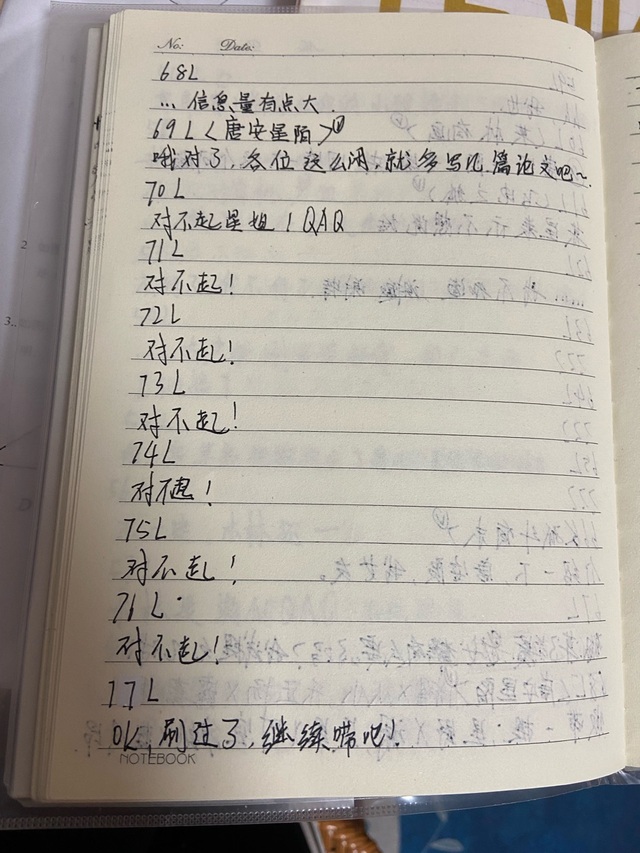 No: Date:
68L
... 信息量有点大.
69L<唐安星陌>Ⓥ
哦对了, 各位这么闲, 就多写几篇论文吧~.
70L
对不起星姐!QAQ
71L
对不起!
72L
对不起!
73L
对不起!
74L
对不起!
75L
对不起!
76L
对不起!
77L
OK, 刷过了, 继续嗨吧!
NOTEBOOK